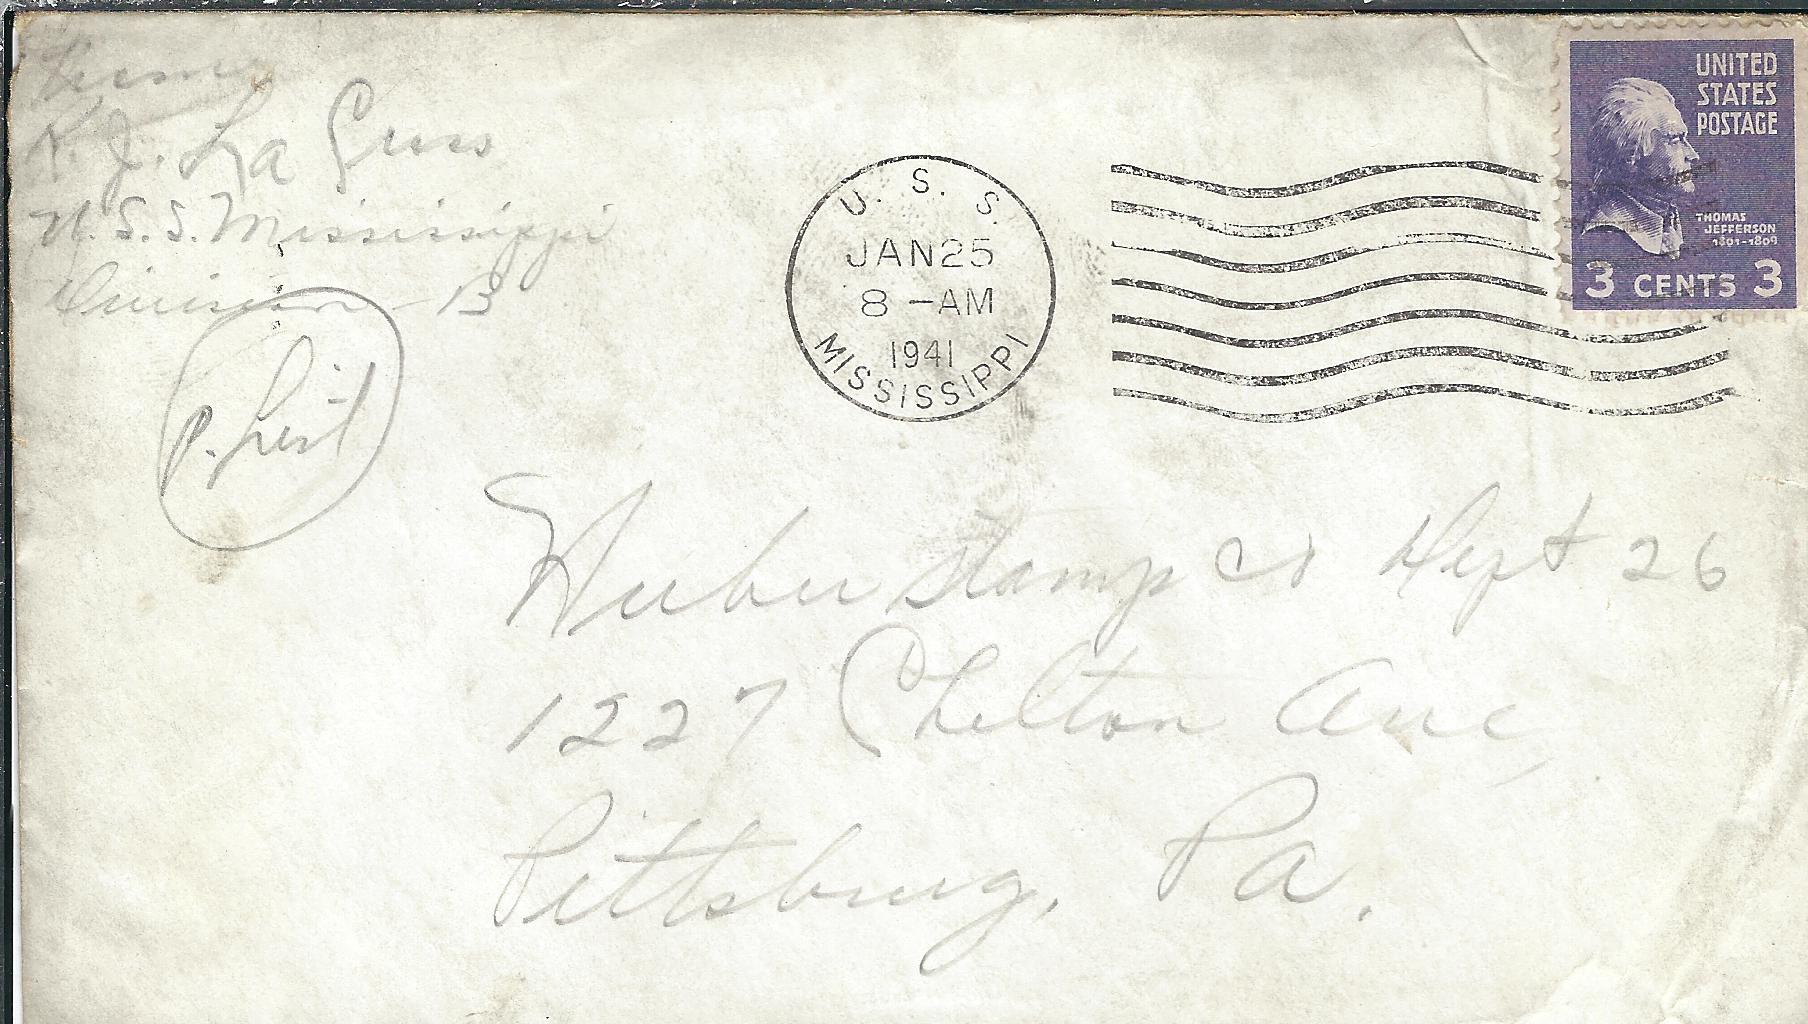 From
R. J. La Guss
U.S.S. Mississippi
Division - B
P. List
U. S. S.
JAN 25
8 -AM
1941
MISSISSIPPI
UNITED
STATES
POSTAGE
THOMAS
JEFFERSON
1801-1809
3 CENTS 3
Huber Stamp Co Dept 26
1227 Chelton Ave,
Pittsburg, Pa.